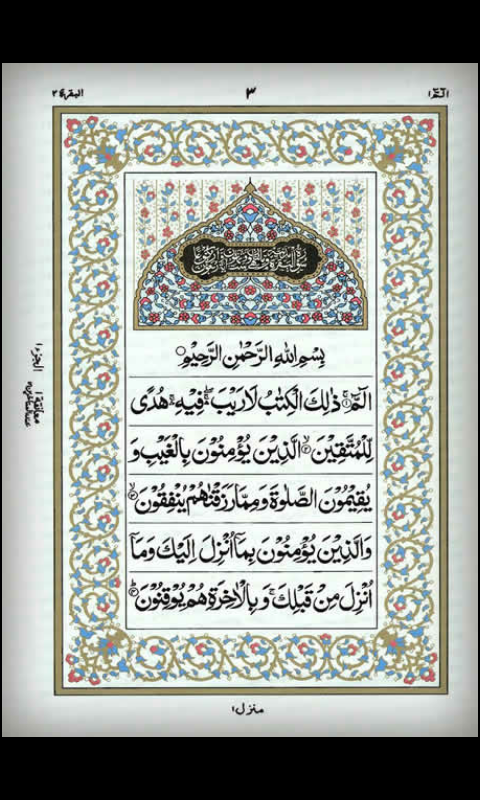 الٓمّٓ ١
٣
البقرة ٢
بِسْمِ اللّٰهِ الرَّحْمٰنِ الرَّحِيْمِ
الٓمّٓ ۚ ذٰلِكَ الْكِتٰبُ لَا رَيْبَ ۛۖ فِيْهِ ۛۚ هُدًى
لِّلْمُتَّقِيْنَ ۙ الَّذِيْنَ يُؤْمِنُوْنَ بِالْغَيْبِ وَ
يُقِيْمُوْنَ الصَّلٰوةَ وَ مِمَّا رَزَقْنٰهُمْ يُنْفِقُوْنَ ۙ
وَالَّذِيْنَ يُؤْمِنُوْنَ بِمَاۤ اُنْزِلَ اِلَيْكَ وَمَاۤ
اُنْزِلَ مِنْ قَبْلِكَ ۚ وَ بِالْاٰخِرَةِ هُمْ يُوْقِنُوْنَ ؕ
الجزء ١
معانقة ١
منزل ١